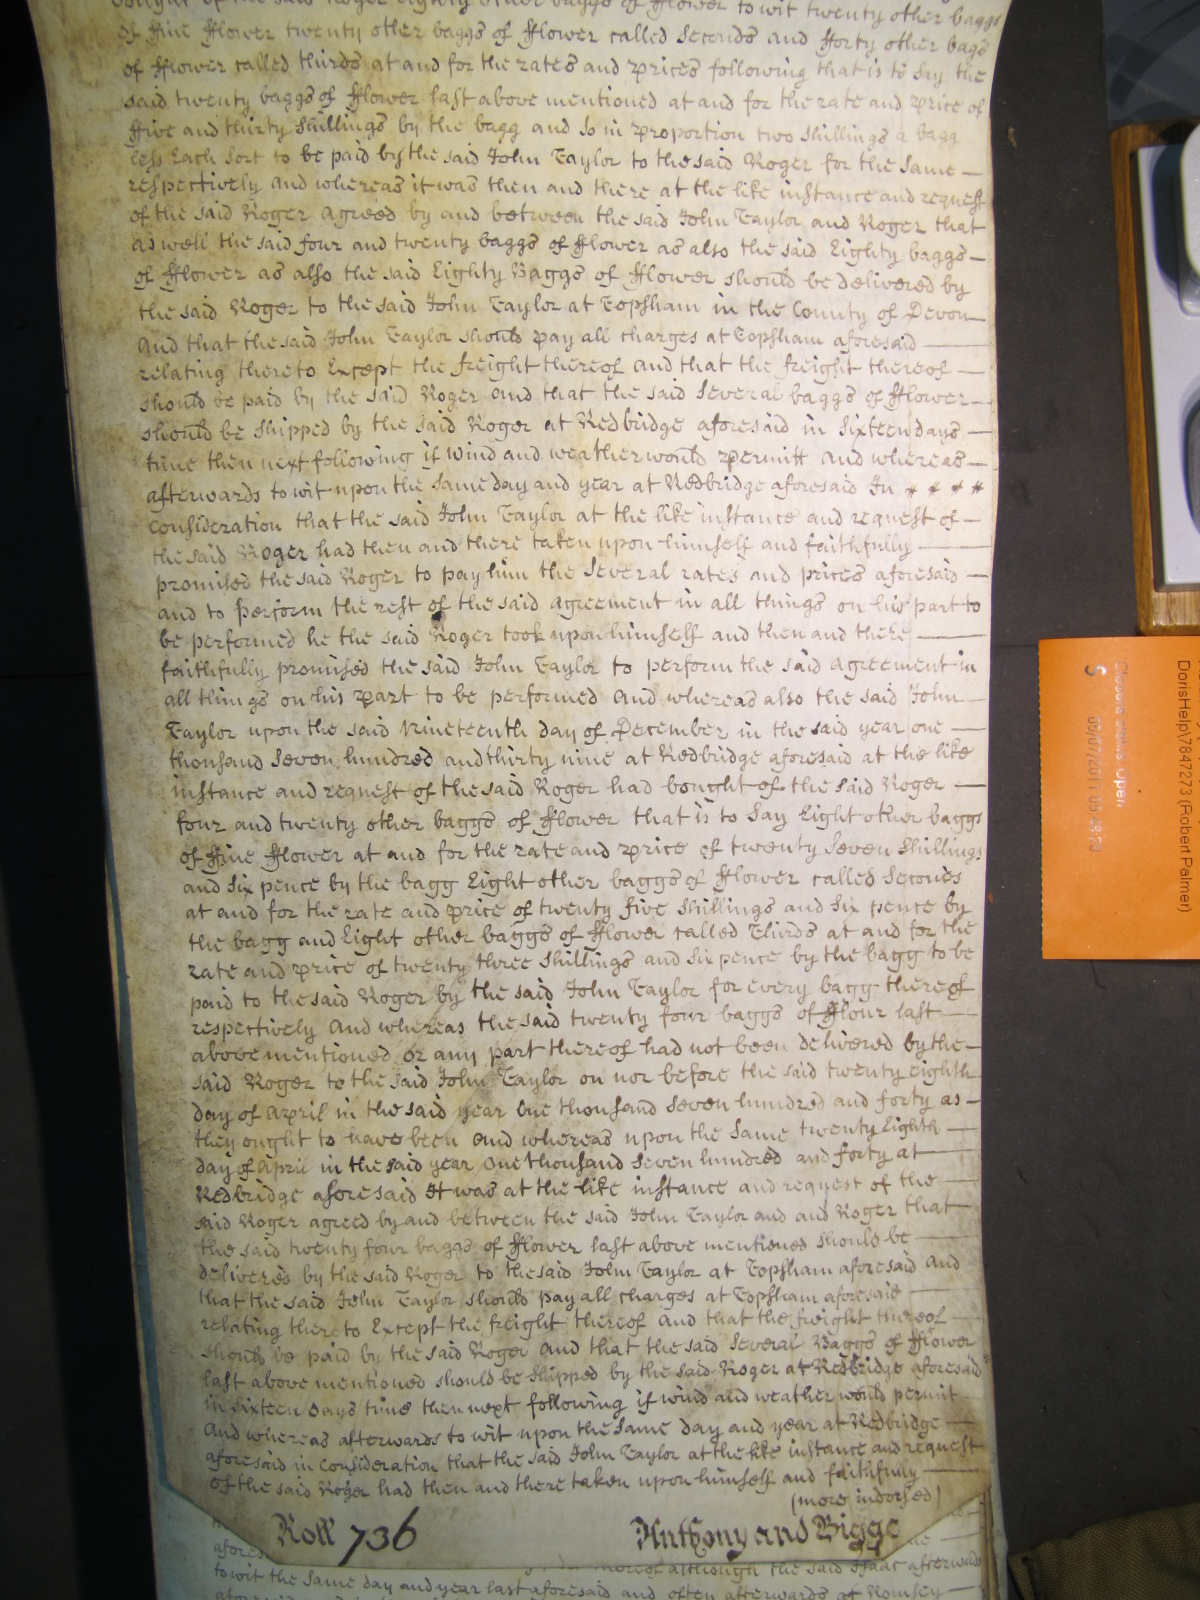 bought of the said Roger Eighty other baggs of fflower to wit twenty other baggs
of ffine fflower twenty other baggs of fflower called Seconds and fforty other bags
of fflower called thirds at and for the rates and prices following that is to say the
said twenty baggs of fflower last above mentioned at and for the rate and price of
ffive and thirty shillings by the bagg and so in proportion two shillings a bagg
less Each sort to be paid by the said John Taylor to the said Roger for the same —
respectively and whereas it was then and there at the like instance and request
of the said Roger agreed by and between the said John Taylor and Roger that
as well the said four and twenty baggs of fflower as also the said Eighty baggs —
of fflower as also the said Eighty Baggs of fflower should be delivered by
the said Roger to the said John Taylor at Topsham in the County of Devon
And that the said John Taylor should pay all charges at Topsham aforesaid —
relating thereto Except the freight thereof and that the freight thereof —
should be paid by the said Roger and that the said Several baggs of fflower —
should be shipped by the said Roger at Redbridge aforesaid in Sixteen days —
time then next following if wind and weather would permitt and whereas —
afterwards to wit upon the same day and year at Redbridge aforesaid In
Consideration that the said John Taylor at the like instance and request of —
the said Roger had then and there taken upon himself and faithfully —
promised the said Roger to pay him the several rates and prices aforesaid —
and to perform the rest of the said agreement in all things on his part to
be performed he the said Roger took upon himself and then and there —
faithfully promised the said John Taylor to perform the said agreement in
all things on his part to be performed And whereas also the said John —
Taylor upon the said Nineteenth day of December in the said year one —
thousand Seven hundred and thirty nine at Redbridge aforesaid at the like
instance and request of the said Roger had bought of the said Roger —
four and twenty other baggs of fflower that is to say Eight other baggs
of ffine fflower at and for the rate and price of twenty Seven shillings
and six pence by the bagg Eight other baggs of fflower called Seconds
at and for the rate and price of twenty five shillings and six pence by
the bagg and Eight other baggs of fflower called Thirds at and for the
rate and price of twenty three shillings and six pence by the bagg to be
paid to the said Roger by the said John Taylor for every bagg thereof
respectively And whereas the said twenty four baggs of fflour last —
above mentioned or any part thereof had not been delivered by the —
said Roger to the said John Taylor on nor before the said twenty eighth
day of April in the said year One thousand Seven hundred and forty as —
they ought to have been And whereas upon the same twenty Eighth —
day of April in the said year One thousand Seven hundred and forty at —
Redbridge aforesaid It was at the like instance and request of the —
said Roger agreed by and between the said John Taylor and and Roger that
the said twenty four baggs of fflower last above mentioned should be —
delivered by the said Roger to the said John Taylor at Topsham aforesaid And
that the said John Taylor should pay all charges at Topsham aforesaid —
relating thereto Except the freight thereof And that the freight thereof —
should be paid by the said Roger And that the said Several Baggs of fflower
last above mentioned should be shipped by the said Roger at Redbridge aforesaid
in sixteen days time then next following if wind and weather would permit
And whereas afterwards to wit upon the same day and year at Redbridge —
aforesaid in Consideration that the said John Taylor at the like instance and request
of the said Roger had then and there taken upon himself and faithfully —
(more indorsed)
Roll 736 Anthony and Bigge
afores
thereof although the said Isaac afterwards
to wit the same day and year last aforesaid and often afterwards at Romsey —
Closure status: Open
05/07/2011
DorisHelp\7847273 (Robert Palmer)
S